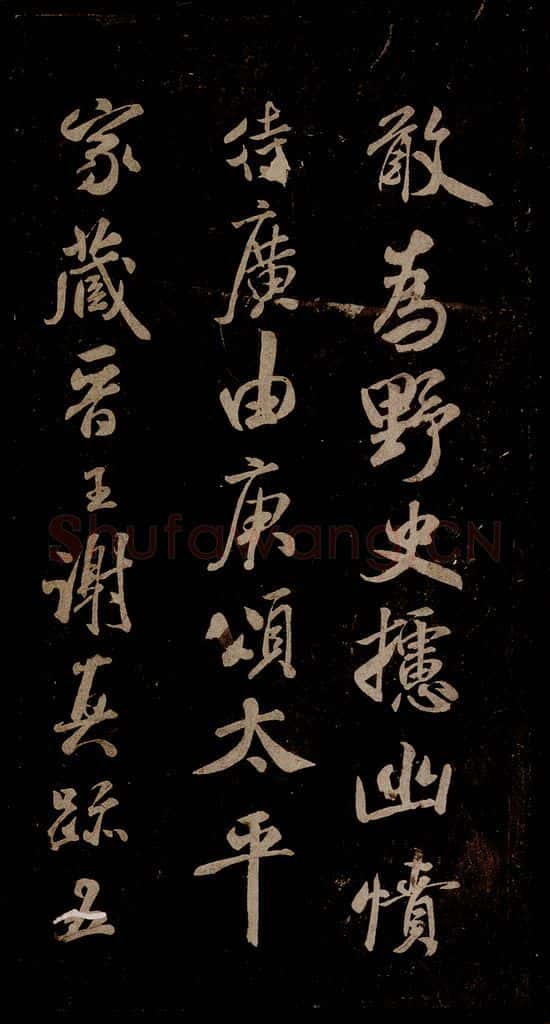 敢為野史攄幽憤
待廣由庚頌太平
家藏晉王謝真跡五
Shufawang.CN